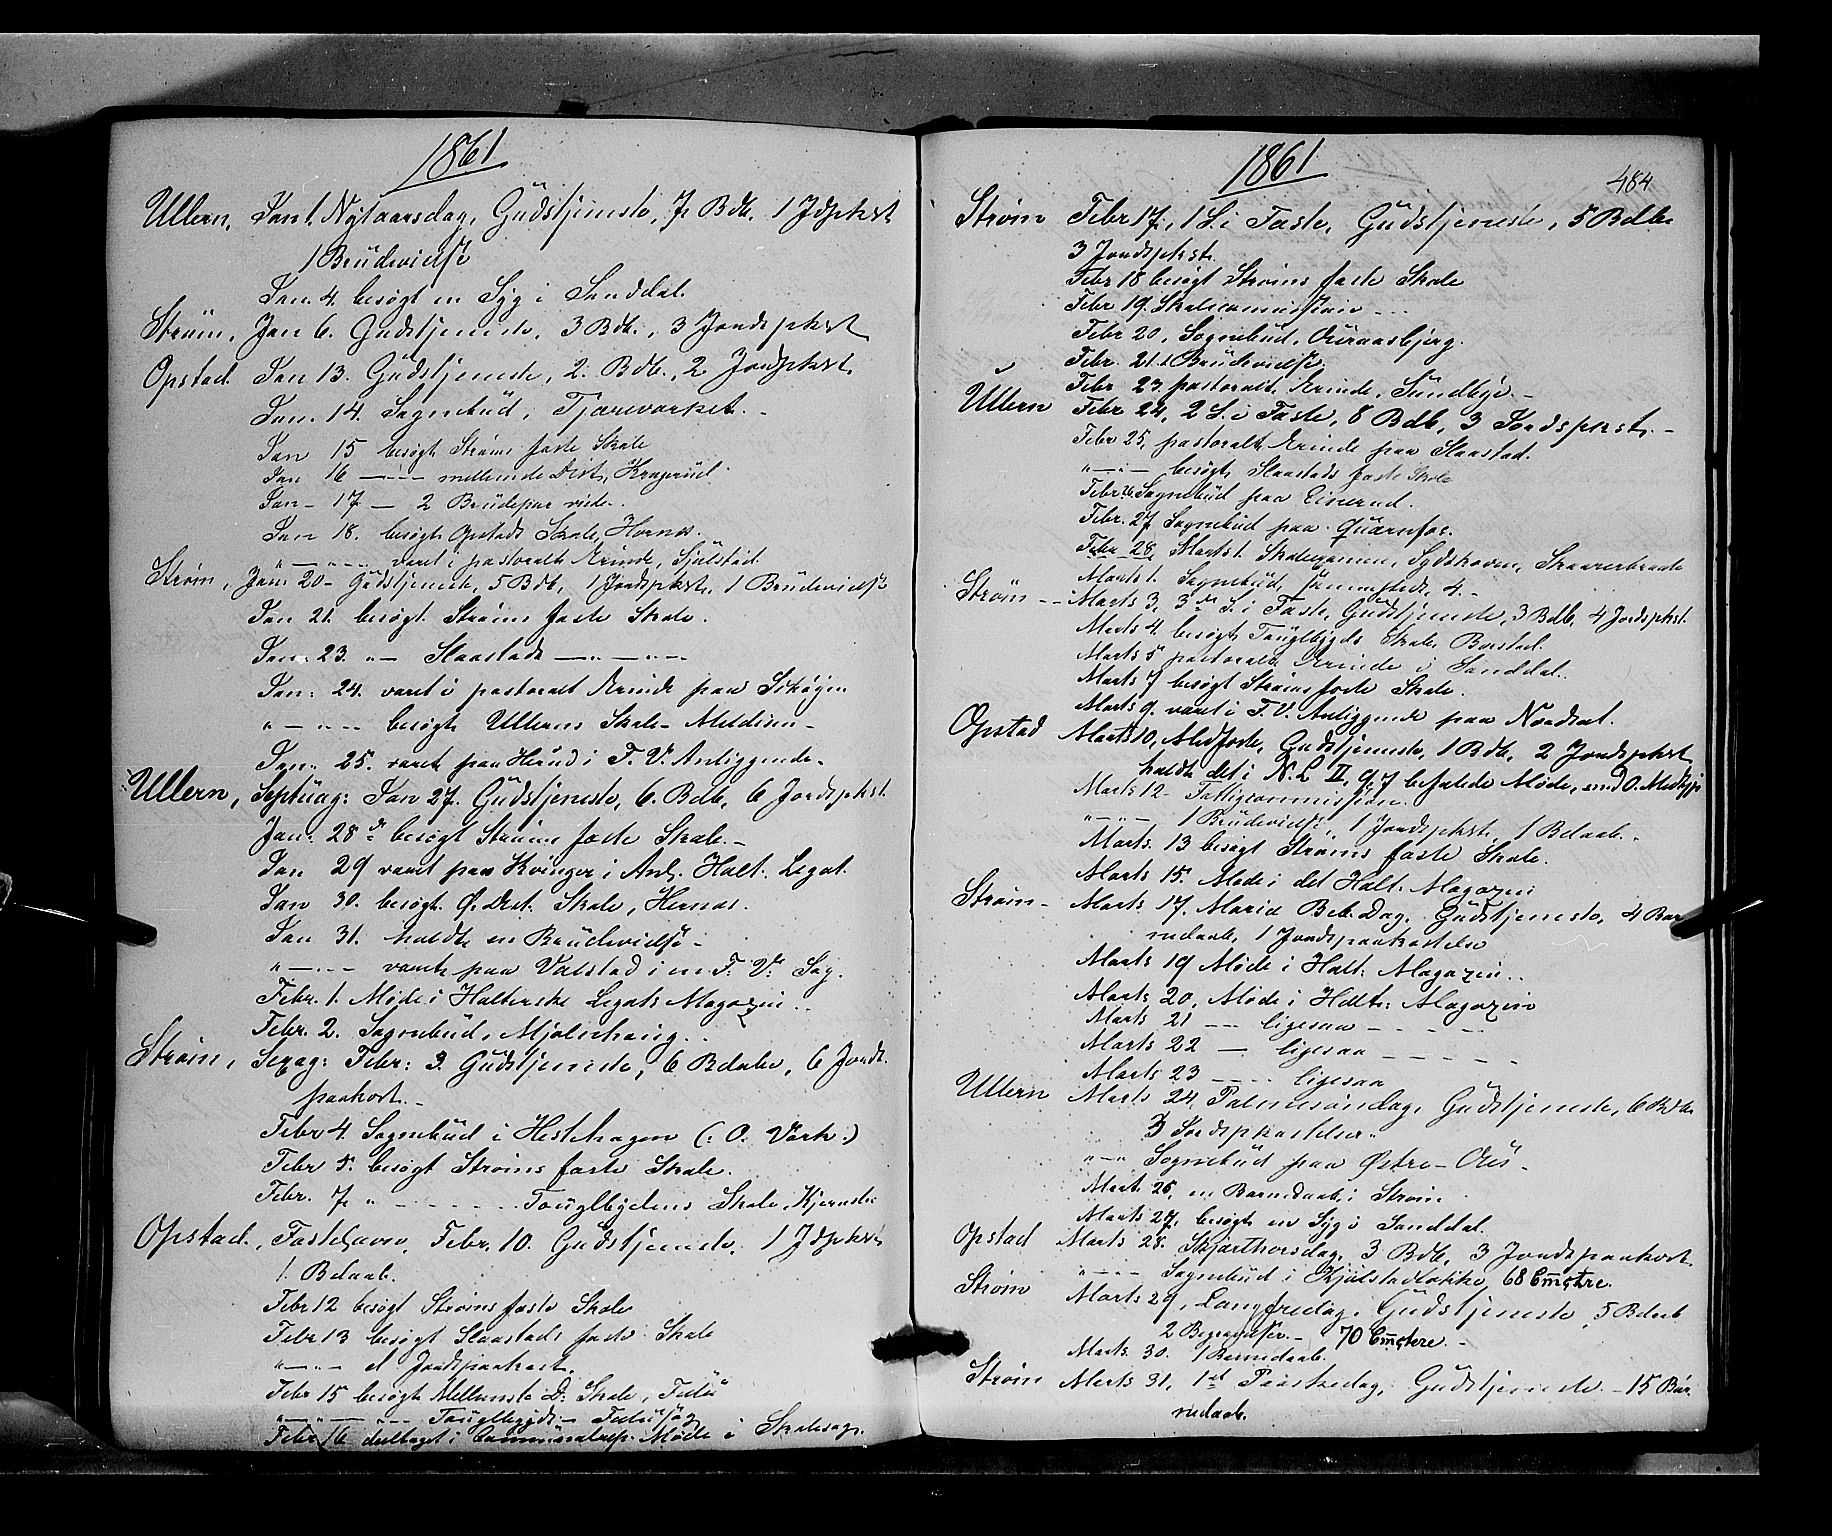 1861
Ullern, Jan 1. Nytaarsdag, Gudstjeneste, 7 Bdb. 1 Jdpkst
1 Brudevielse
Jan. 4. besøgt en Syg i Sanddal.
Strøm, Jan 6. Gudstjeneste, 3 Bdb., 3 Jordspkst
Opstad. Jan 13. Gudstjeneste, 2. Bdb., 2 Jordspkst.
Jan. 14. Sognebud, Tjæreværket. -
Jan 15 besøgt Strøms faste Skole
Jan 16 — mellemste Dist,
Jan - 17 — 2 Brudepar viede.
Jan 18. besøgt Opstads Skole, Hornes.
" — været i pastoralt Erinde, Sjulstad.
Strøm, Jan: 20 - Gudstjeneste, 5 Bdb, 1 Jordspkst. 1 Brudevielse
Jan 21. besøgt Strøms faste Skole.
Jan: 23. " — Slaastads — " —
Jan: 24. været i pastoralt Erinde paa
" — besøgt Ullerns Skole -
Jan: 25. været paa Herud i F. V. Anliggende.
Ullern, Septuag: Jan 27. Gudstjeneste, 6. Bdb, 6 Jordspkst.
Jan: 28de besøgt Strøms faste Skole. -
Jan 29 været paa Kongsvinger i Anl. Holt. Legat.
Jan 30. besøgt Ø. Dist. Skole, Hernes.
Jan 31. holdt en Brudevielse -
" — været paa Valstad i en F. V. Sag.
Febr. 1. Møde i Holterske Legats Magazin.
Febr. 2. Sognebud, Mjølnehaug.
Strøm, Sexag: Febr: 3. Gudstjeneste, 6 Bdaabe, 6 Jords
paakast. -
Febr 4. Sognebud i Hestehagen (: O. Værk :)
Febr 5. besøgt Strøms faste Skole.
Febr. 7 " — Tougbygdens Skole,
Opstad., Fastelavn, Febr. 10. Gudstjeneste, 1 Jdpkst
1 Bdaab.
Febr 12 besøgt Strøms faste Skole
Febr 13 besøgt Slaastads faste Skole
" — et Jordspaakast.
Febr 15 besøgt Mellemste D. Skole,
" — Tougbygds —
Febr 16 deeltaget i Møde i Skolesag.
1861
484
Strøm Febr 17, 1 S. i Faste, Gudstjeneste, 5 Bdbe
3 Jordspkst.
Febr 18 besøgt Strøms faste Skole
Febr 19. Skolecommission - - -
Febr 20, Sognebud,
Febr. 21. 1 Brudevielse.
Febr 23. pastoralt Erinde, Sundbye. -
Ullern Febr 24, 2 S. i Faste, 8 Bdb, 3 Jordspkst. -
Febr 25, pastoralt Erinde paa Slaastad.
" — besøgt Slaastads faste Skole
Febr 26 Sognebud paa Einerud.
Febr. 27 Sognebud paa Quærnfos.
Febr. 28, Marts 1. Skoleexamen, Sydskoven,
Marts 1. Sognebud,
Strøm - - Marts 3, 3de S. i Faste, Gudstjeneste, 3 Bdb. 4 Jordspkst.
Marts 4. besøgt Tougbygds Skole,
Marts 5 pastoralt Erinde i Sanddal.
Marts 7 besøgt Strøms faste Skole.
Marts 9. været i F. V. Anliggende paa
Opstad Marts 10, Midfaste, Gudstjeneste, 1 Bdb, 2 Jordspkst
holdt det i N. L. II, 9, 7 befalede Møde,
Marts 12 - Fattigcommission.
" — 1 Brudevielse, 1 Jordspkst, 1 Bdaab. -
Marts 13 besøgt Strøms faste Skole.
Marts 15. Møde i det Holt. Magazin
Strøm - Marts 17. Mariæ Beb. Dag. Gudstjeneste, 4 Bar
nedaab, 1 Jordspaakastelse
Marts 19 Møde i Holt: Magazin. .
Marts 20, Møde i Holt: Magazin
Marts 21 — ligesaa - - - -
Marts 22 — ligesaa - - - - -
Marts 23 - - - ligesaa
Ullern Marts 24, Palmesøndag, Gudstjeneste, 6 Bdbe
3 Jordspkastelser.
" — " Sognebud paa Østre -
Mart. 26, en Barnedaab i Strøm
Marts 27, besøgt en Syg i Sanddal.
Opstad Marts 28. Skjærthorsdag, 3 Bdb, 3 Jordspaakast.
" — Sognebud i Kjølstadløkke, 68 Cmctre.
Strøm Marts 29, Langfredag, Gudstjeneste, 5 Bdaab
2 Begravelser. - 70 Cmctere. -
Marts. 30. 1 Barnedaab.
Strøm Marts 31, 1ste Paaskedag, Gudstjeneste - 15 Bar
nedaab.